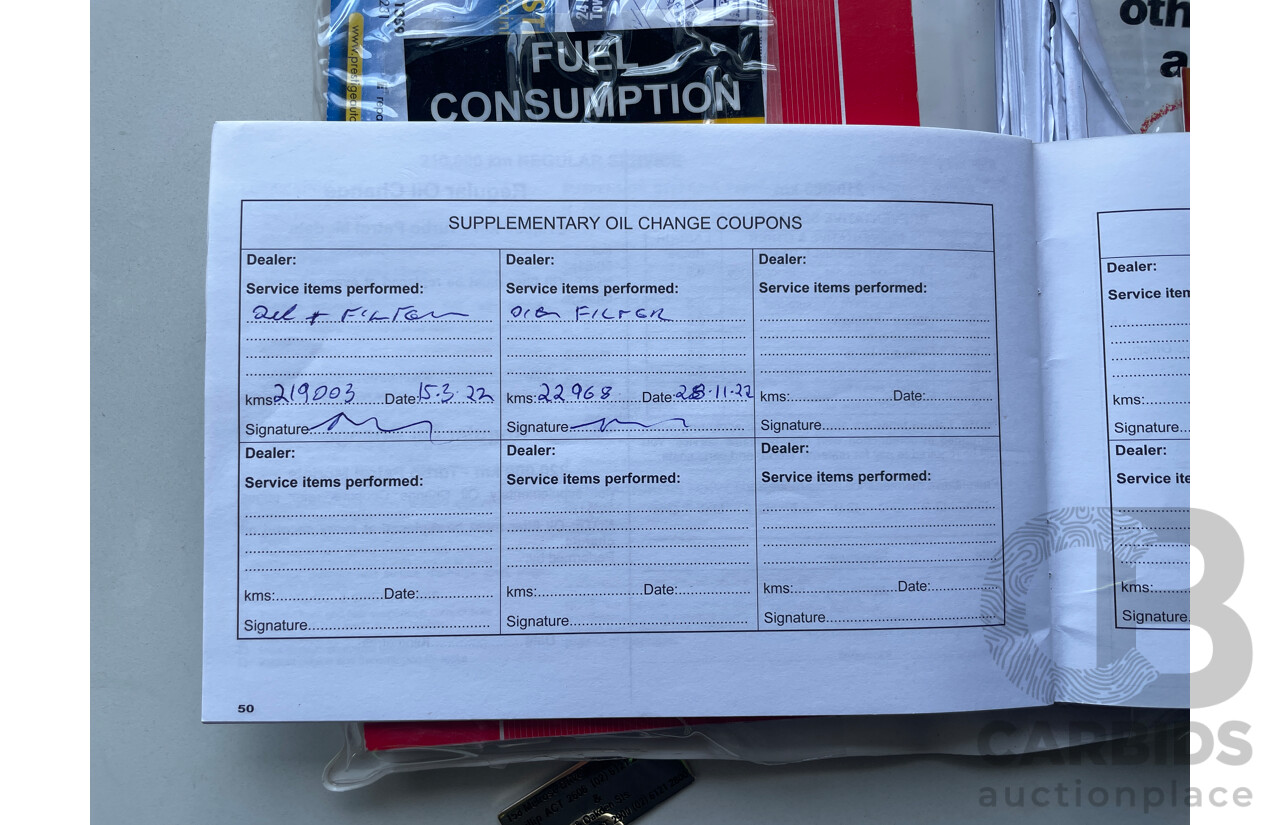 www.prestigeauto
FUEL
CONSUMPTION
oth
a
SUPPLEMENTARY OIL CHANGE COUPONS
Dealer: Dealer: Dealer:
Service items performed: Service items performed: Service items performed:
Oil + FILTER OIL FILTER
kms: 219003 Date: 15.3.22 kms: 22968 Date: 28.11.22 kms: Date:
Signature Signature Signature
Dealer: Dealer: Dealer:
Service items performed: Service items performed: Service items performed:
kms: Date: kms: Date: kms: Date:
Signature Signature Signature
50
Dealer:
Service iten
kms:
Signature
Dealer:
Service ite
kms:
Signature
CARBIDS
auctionplace